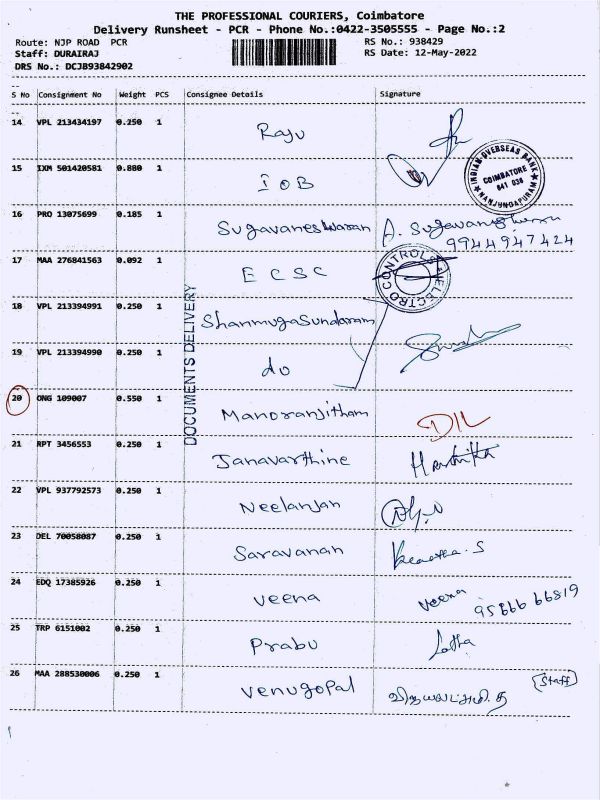 THE PROFESSIONAL COURIERS, Coimbatore
Delivery Runsheet - PCR - Phone No.:0422-3505555 - Page No.:2
Route: NJP ROAD PCR RS No.: 938429
Staff: DURAIRAJ RS Date: 12-May-2022
DRS No.: DCJB93842902
S No Consignment No Weight PCS Consignee Details Signature
14 VPL 213434197 0.250 1 Raju
15 IXM 501420581 0.880 1 IOB
INDIAN OVERSEAS BANK
COIMBATORE
641 036
NANJUNDAPURAM
16 PRO 13075699 0.185 1 Sugavaneshwaran A. Sugavaneshwaran
9944947424
17 MAA 276841563 0.092 1 ECSC
ELECTRO CONTROLS
18 VPL 213394991 0.250 1 Shanmugasundaram
DOCUMENTS DELIVERY
19 VPL 213394990 0.250 1 do
20 ONG 109007 0.550 1 Manoranjitham DIL
21 RPT 3456553 0.250 1 Janavarthine
22 VPL 937792573 0.250 1 Neelanjan
23 DEL 70058087 0.250 1 Saravanan
24 EDQ 17385926 0.250 1 veena veena
9566666819
25 TRP 6151002 0.250 1 Prabu Latha
26 MAA 288530006 0.250 1 venugopal (Staff)